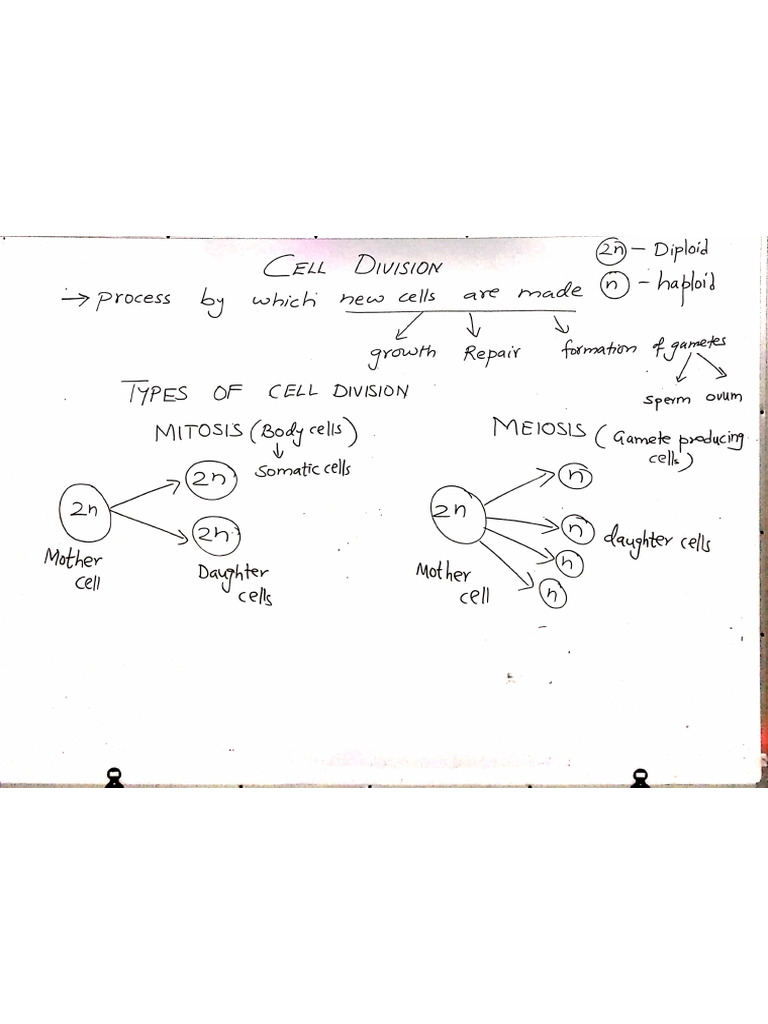 CELL DIVISION
2n - Diploid
n - haploid
→ process by which new cells are made
growth Repair formation of gametes
sperm ovum
TYPES OF CELL DIVISION
MITOSIS (Body cells)
Somatic cells
MEIOSIS (Gamete producing
cells)
2n
2n
2n
Mother
cell
Daughter
cells
2n
n
n
n
n
daughter cells
Mother
cell